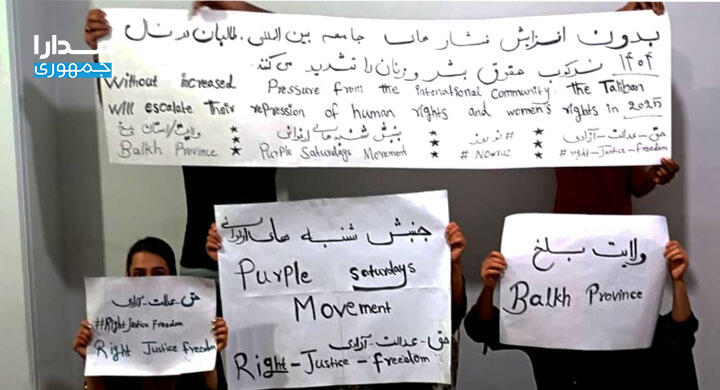 مدارا
جمهوری
بدون افزایش فشار های جامعه بین المللی، طالبان در سال
۱۴۰۴ سرکوب حقوق بشر و زنان را تشدید می کنند
Without increased Pressure from the international community, the Taliban
will escalate their repression of human rights and women's rights in 2025
حق-عدالت-آزادی ★ #نوروز ★ جنبش شنبه های ارغوانی ★ ولایت/استان بلخ
Balkh Province ★ Purple Saturdays Movement ★ #Nowruz ★ #right-Justice-freedom
حق-عدالت-آزادی
#Right Justice Freedom
Right Justice freedom
جنبش شنبه های ارغوانی
Purple Saturdays
Movement
حق-عدالت-آزادی
Right-Justice-freedom
ولایت بلخ
Balkh Province